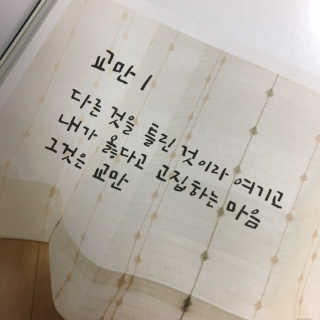 교만 1
다른 것을 틀린 것이라 여기고
내가 옳다고 고집하는 마음
그것은 교만